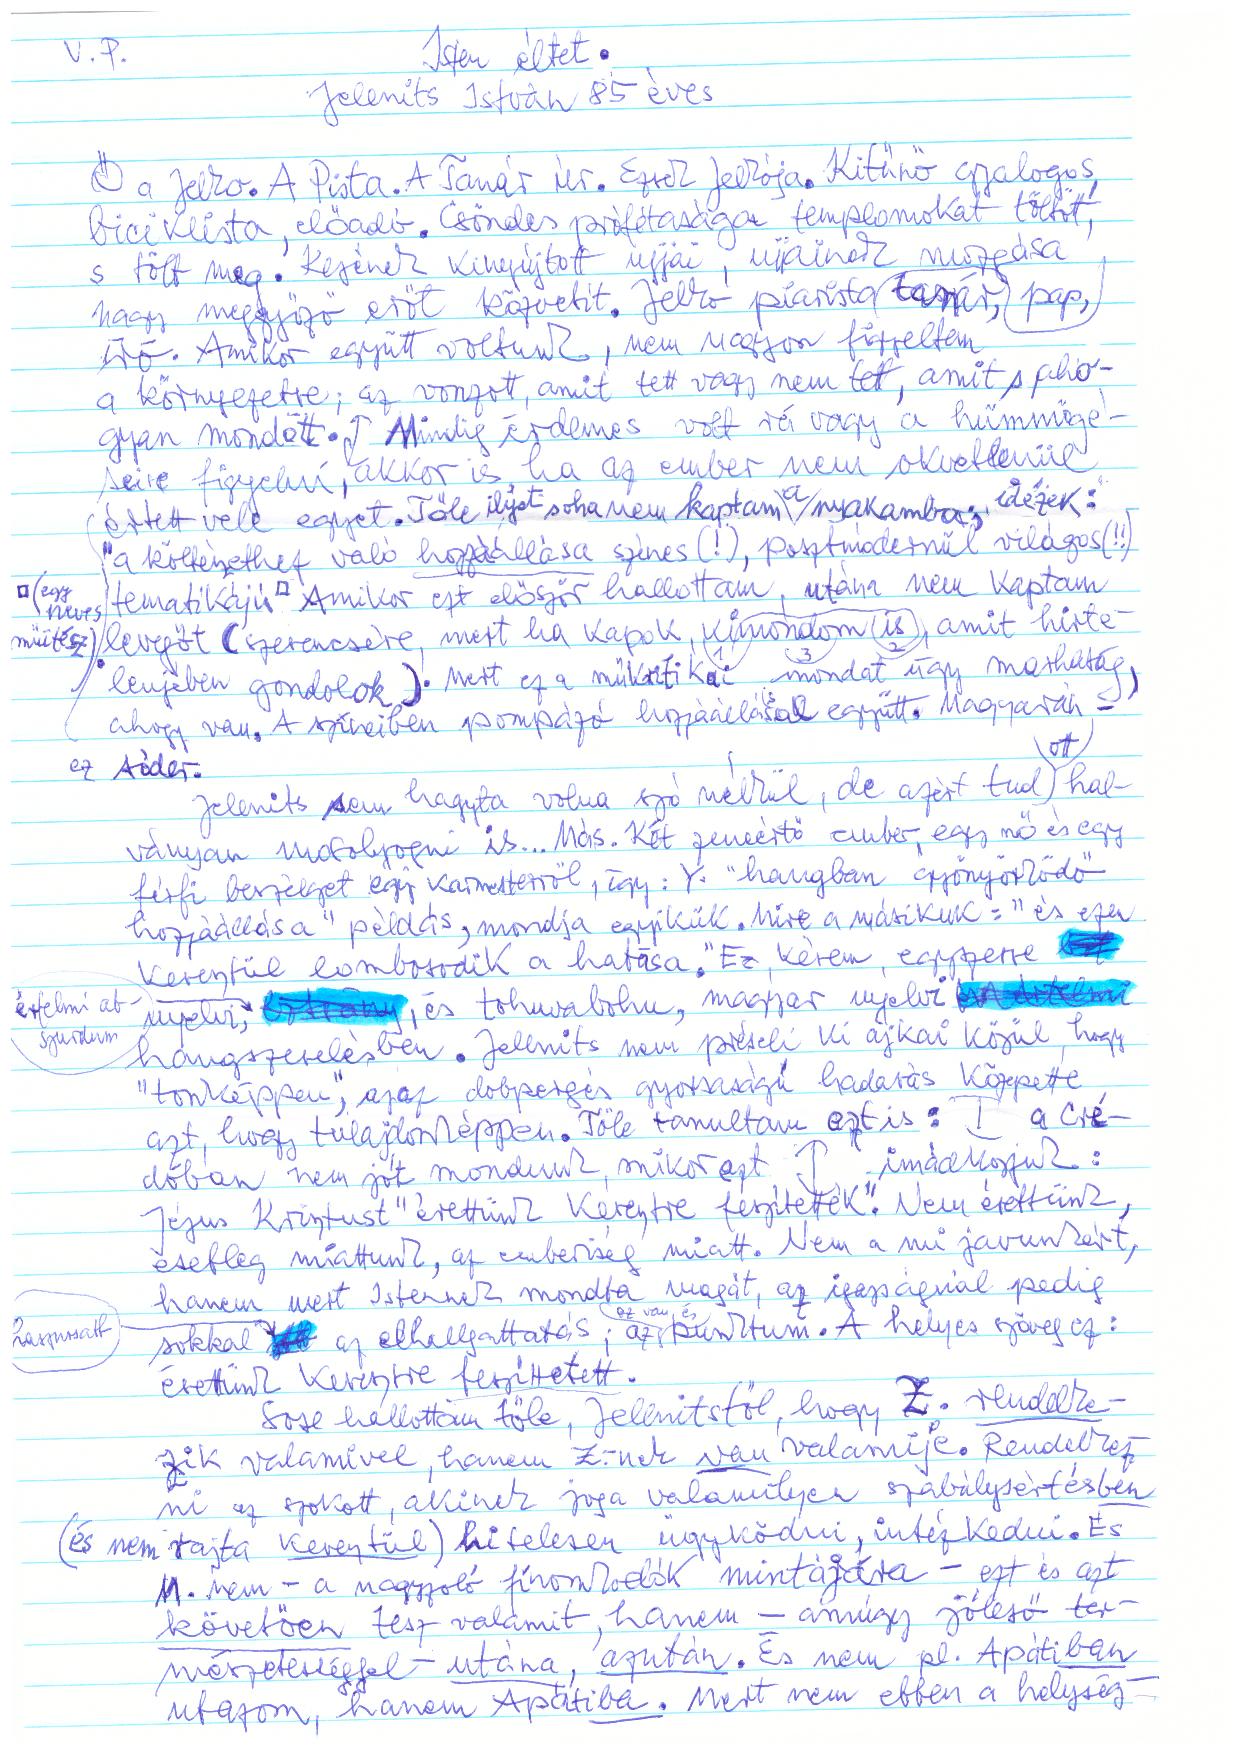 V. P.
Isten éltet.
Jelenits István 85 éves
Ő a Jelko. A Pista. A Tanár úr. Ezrek Jelkója. Kitűnő gyalogos,
biciklista, előadó. Csöndes prófétasága templomokat töltött,
s tölt meg. Kezének kinyújtott ujjai, ujjainak mozgása
nagy meggyőző erőt közvetít. Jelkó piarista tanár, pap,
író. Amikor együtt voltunk, nem nagyon figyeltem
a környezetre; az vonzott, amit tett vagy nem tett, amit s aho-
gyan mondott. Mindig érdemes volt rá vagy a hümmögé-
seire figyelni, akkor is, ha az ember nem okvetlenül
értett vele egyet. Tőle ilyet soha nem kaptam a nyakamba; idézek:
"a költészethez való hozzáállása színes (!), posztmodernül világos (!!)
tematikájú" Amikor ezt először hallottam, utána nem kaptam
(egy
neves
műítész).
levegőt (szerencsére, mert ha kapok, kimondom is, amit hirte-
1 3 2
lenjében gondolok). Mert ez a műkritikai mondat úgy marhaság,
ahogy van. A színeiben pompázó hozzáállással is együtt. Magyarán –
ez
Jelenits sem hagyta volna szó nélkül, de azért tudott hal-
ványan mosolyogni is... Más. Két zeneértő ember, egy nő és egy
férfi beszélget egy karmesterről, így: Y. "hangban gyönyörködő
hozzáállása" példás, mondja egyikük. Mire a másikuk: "és ezen
keresztül lombosodik a hatása." Ez, kérem, egyszerre
értelmi ab-
szurdum
nyelvi, és tohuvabohu, magyar nyelvi
hangszerelésben. Jelenits nem présel ki ajkai közül, hogy
"tonképpen", azaz dobpergés gyorsaságú hadarás közepette
azt, hogy tulajdonképpen. Tőle tanultam azt is: a Cré-
dóban nem jót mondunk, mikor azt imádkozzuk:
Jézus Krisztust "érettünk keresztre feszítették". Nem érettünk,
esetleg miattunk, az emberiség miatt. Nem a mi javunkért,
hanem mert Istennek mondta magát, az igazságnál pedig
sokkal az elhallgattatás; ez van, és punktum. A helyes szöveg ez:
érettünk keresztre feszíttetett.
Sose hallottam tőle, Jelenitstől, hogy Z. rendelke-
zik valamivel, hanem Z-nek van valamije. Rendelkez-
ni az szokott, akinek joga valamilyen szabálysértésben
(és nem rajta keresztül) hitelesen ügyködni, intézkedni. És
N. nem – a nagyzoló finomkodók mintájára – ezt és azt
követően tesz valamit, hanem – amúgy jóleső ter-
mészetességgel – utána, azután. És nem pl. Apátiban
utazom, hanem Apátiba. Mert nem ebben a helység-